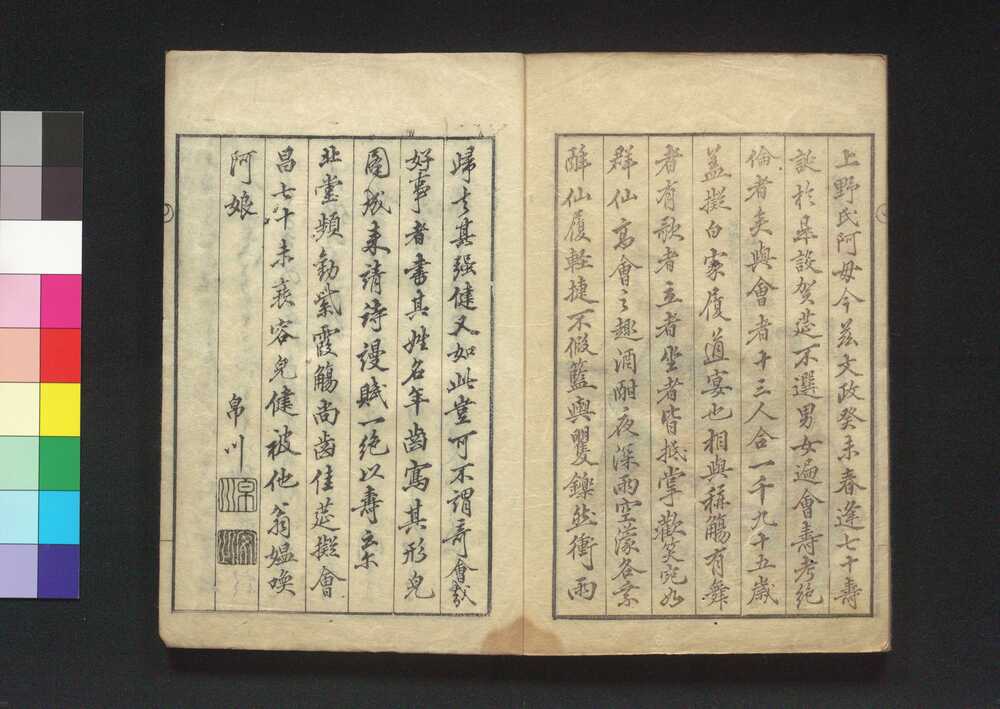 上野氏阿母今茲文政癸未春逢七十壽
誕於是設賀莚不選男女遍會壽考絶
倫者矣與會者十三人合一千九十五歳
盖擬白家履道宴也相與稱觴有舞
者有歌者立者坐者皆抵掌歡笑宛如
群仙高會之趣酒酣夜深雨空濛各乘
醉仙履輕捷不假籃輿矍鑠然衝雨
歸去其強健又如此豈可不謂奇會哉
好事者書其姓名年齒寫其形皃
圖成來請詩謾賦一絶以壽云尓
北堂頻勧紫霞觴尚齒佳莚擬會
昌七十未衰容皃健被他翁媼喚
阿娘
帛川